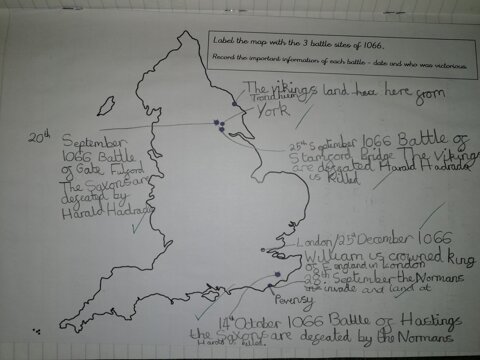 Label the map with the 3 battle sites of 1066.
Record the important information of each battle - date and who was victorious
The vikings land here from
Trondheim
York
20th September
1066 Battle
of Gate Fulford
The Saxons are
defeated by
Harald Hadrada
25th September 1066 Battle of
Stamford Bridge The Vikings
are defeated Harald Hadrada
is killed
London/25th December 1066
William is crowned king
of England in London
28th September the Normans
invade and land at
Pevensy
14th October 1066 Battle of Hastings
the Saxons are defeated by the Normans
Harold is killed.